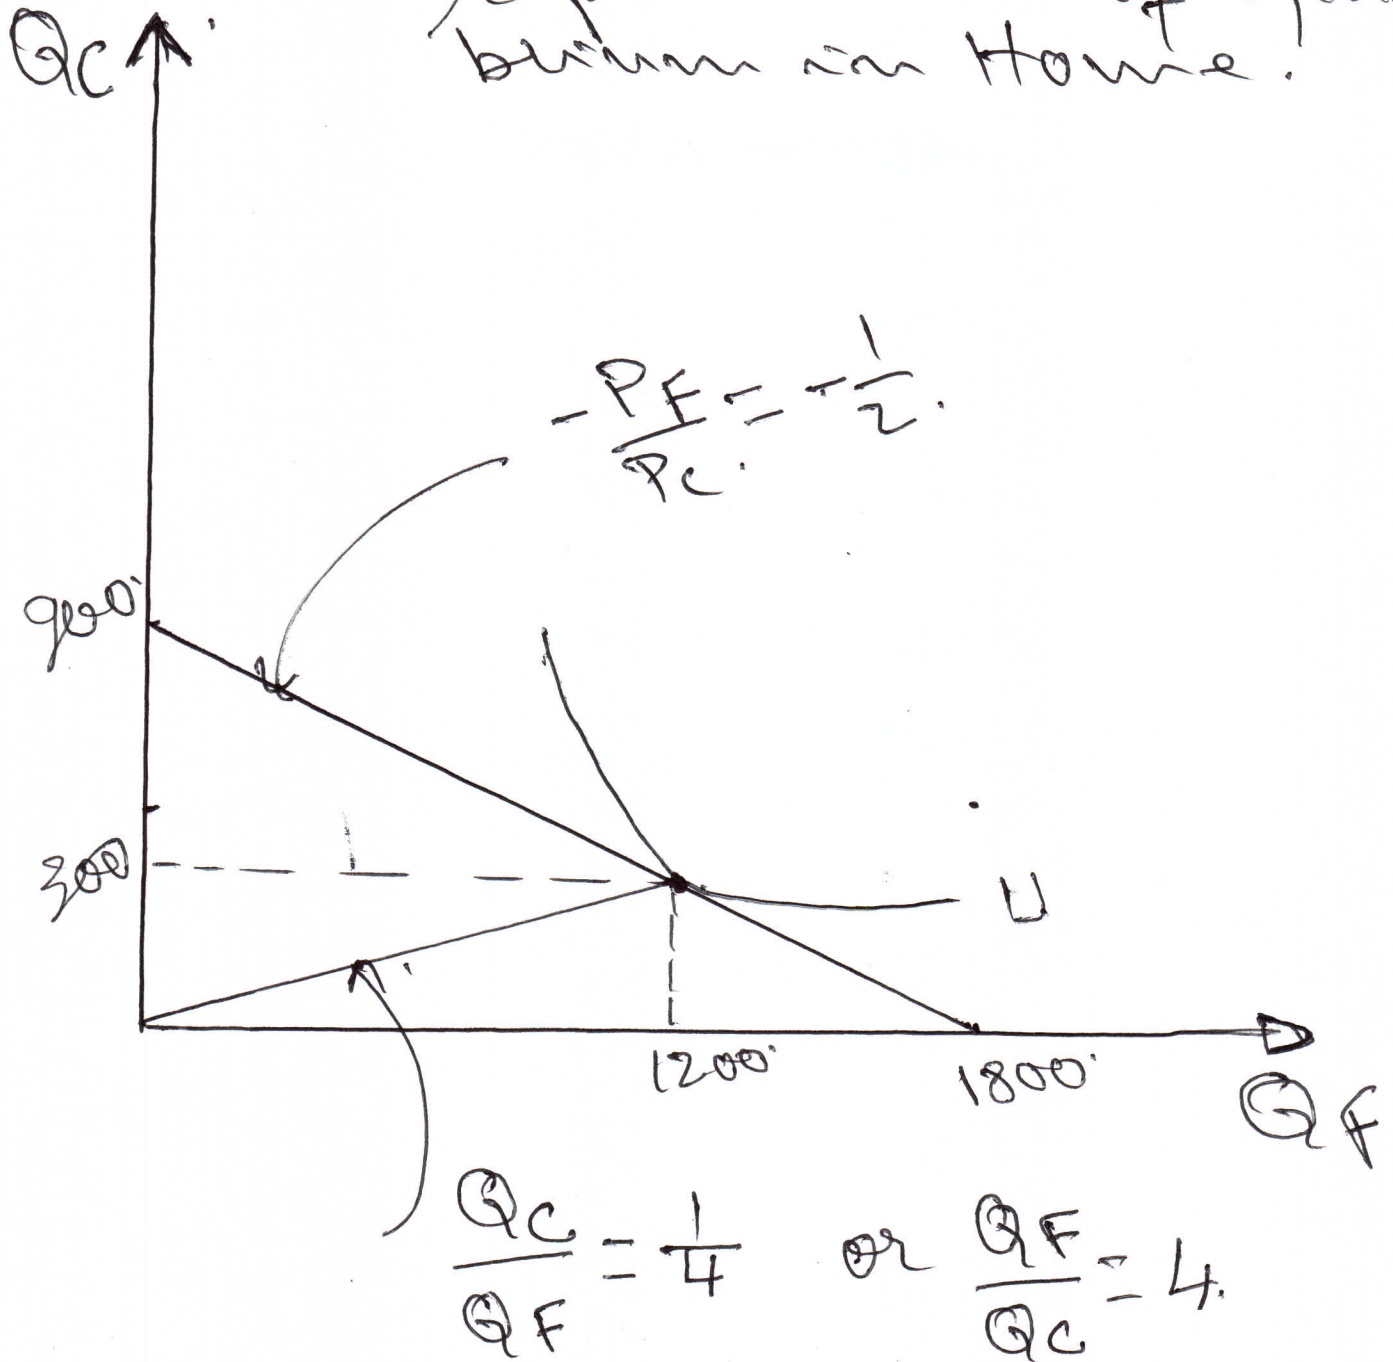 brium in Home.
Qc
-PF/Pc = -1/2.
900
300
U
1200
1800
QF
Qc/QF = 1/4 or QF/Qc = 4.